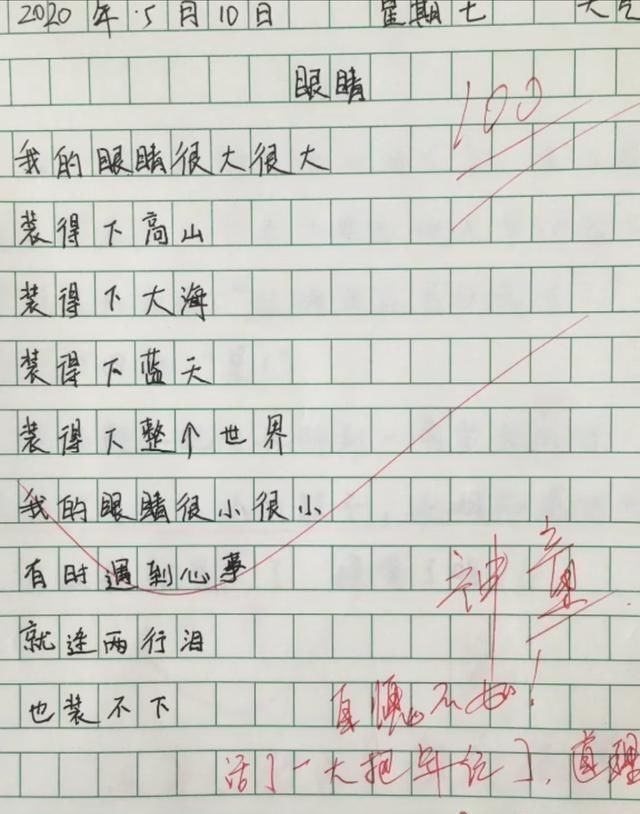 2020年5月10日 星期七 天气
眼睛
100
我的眼睛很大很大
装得下高山
装得下大海
装得下蓝天
装得下整个世界
我的眼睛很小很小
有时遇到心事
就连两行泪
也装不下
神童
自愧不如！
活了一大把年纪了，道理